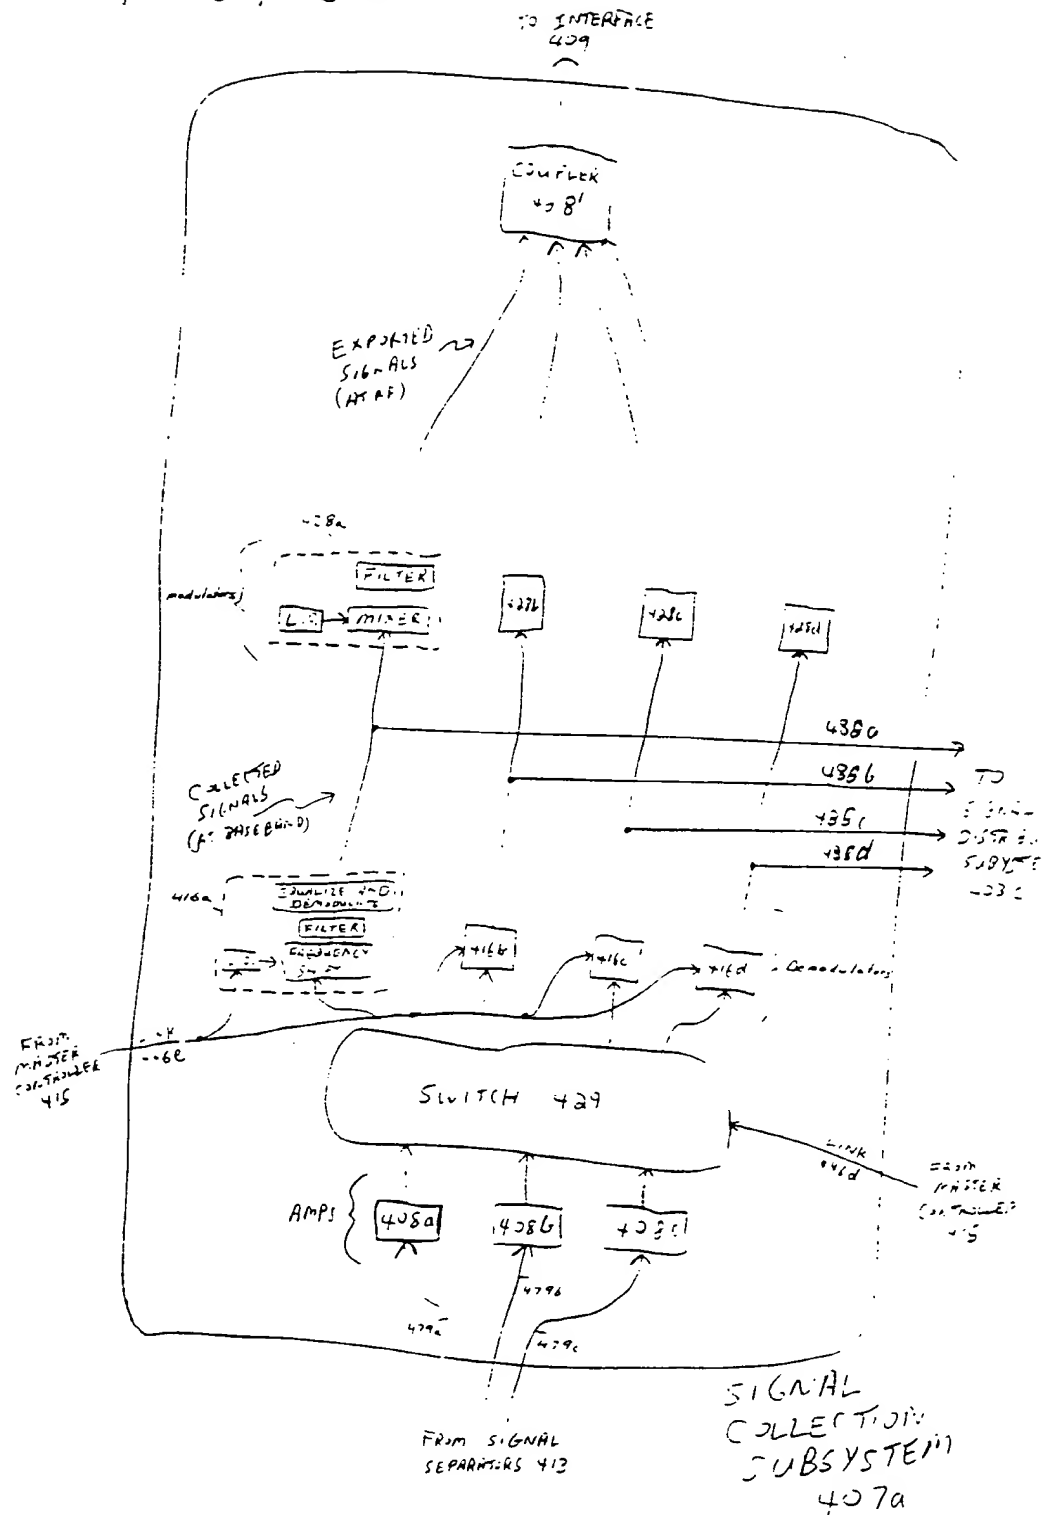 TO INTERFACE
409
COUPLER
408'
EXPORTED
SIGNALS
(AT RF)
428a
FILTER
modulators
L.O. MIXER
428b
428c
428d
438a
438b
438c
438d
TO
SIGNAL
SUBSYSTE
403c
COLLECTED
SIGNALS
(AT BASEBAND)
416a
EQUALIZE AND
DEMODULATE
FILTER
FREQUENCY
416b
416c
416d
Demodulators
FROM
MASTER
CONTROLLER
415
SWITCH 429
LINK
446d
FROM
MASTER
CONTROLLER
415
AMPS
408a
408b
408c
479a
479b
479c
FROM SIGNAL
SEPARATORS 413
SIGNAL
COLLECTION
SUBSYSTEM
407a